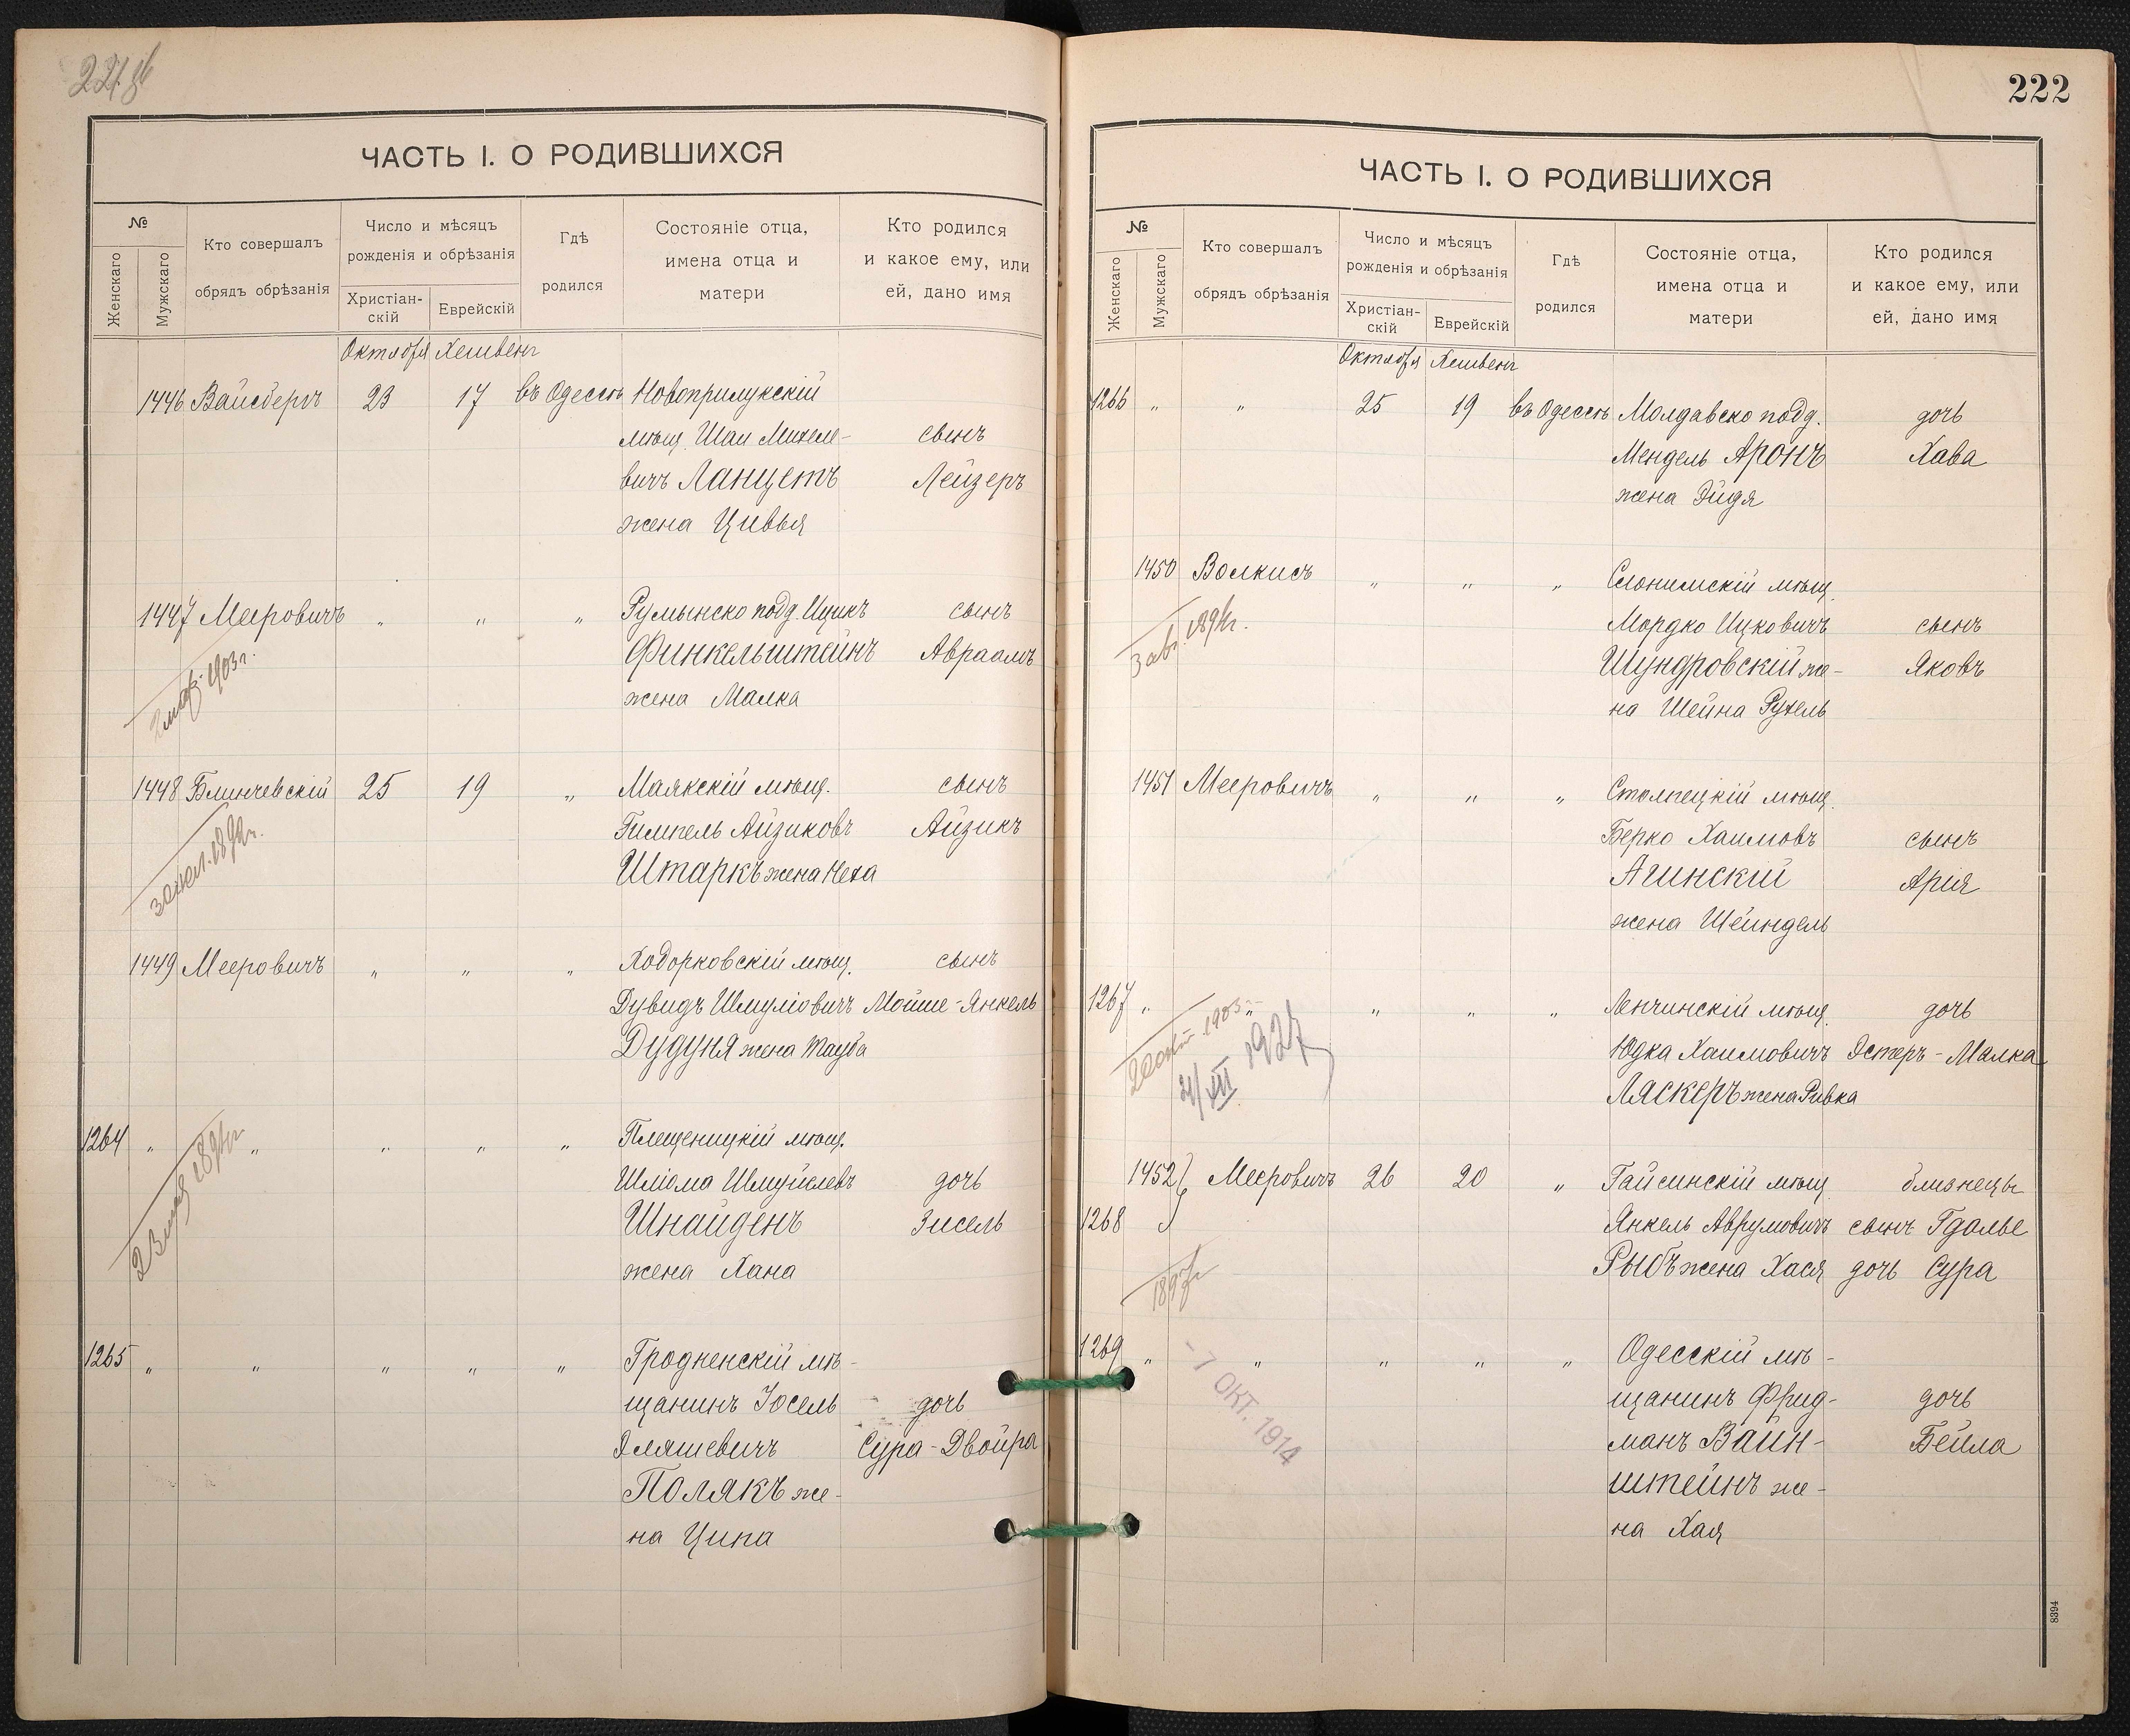 ЧАСТЬ I. О РОДИВШИХСЯ
№
Женскаго
Мужскаго
Кто совершалъ
обрядъ обрѣзанія
Число и мѣсяцъ
рожденія и обрѣзанія
Христіан-
скій
Еврейскій
Гдѣ
родился
Состояніе отца,
имена отца и
матери
Кто родился
и какое ему, или
ей, дано имя
Октября Хешвенъ
1446 Вайсбергъ 23 17 въ Одессѣ Новоприлукскій
мѣщ. Шая Михеле- сынъ
вичъ Ланцетъ Лейзеръ
жена Цивья
1447 Мееровичъ " " " Румынско подд. Ицикъ сынъ
Финкельштейнъ Авраамъ
жена Малка
1903 г.
1448 Блинчевскій 25 19 " Маякскій мѣщ. сынъ
Гимпель Айзиковъ Айзикъ
Штаркъ жена Неха
1449 Мееровичъ " " " Ходорковскій мѣщ. сынъ
Дувидъ Шмуліовичъ Мойше-Янкель
Дудуня жена Тауба
1264 " " " " " Плещеницкій мѣщ.
Шліома Шмуйлевъ дочь
Шнайденъ Зисель
жена Хана
1265 " " " " " Гродненскій мѣ-
щанинъ Іосель дочь
Эляшевичъ Сура-Двойра
Полякъ же-
на Ципа
222
ЧАСТЬ I. О РОДИВШИХСЯ
№
Женскаго
Мужскаго
Кто совершалъ
обрядъ обрѣзанія
Число и мѣсяцъ
рожденія и обрѣзанія
Христіан-
скій
Еврейскій
Гдѣ
родился
Состояніе отца,
имена отца и
матери
Кто родился
и какое ему, или
ей, дано имя
Октября Хешвенъ
1266 " " 25 19 въ Одессѣ Молдавско подд. дочь
Мендель Аронъ Хава
жена Эйдя
1450 Волкисъ " " " Слонимскій мѣщ.
Мордко Ицковичъ сынъ
Шундровскій же- Яковъ
на Шейна Рухель
1451 Мееровичъ " " " Столпецкій мѣщ.
Берко Хаимовъ сынъ
Агинскій Арія
жена Шейндель
1267 " " " " " Ленчинскій мѣщ. дочь
Юдка Хаимовичъ Эстеръ-Малка
Ляскеръ жена Ривка
XII 1927
1452 Мееровичъ 26 20 " Гайсинскій мѣщ. близнецы
1268 Янкель Аврумовичъ сынъ Гдалье
Рыбъ жена Хася дочь Сура
1269 " " " " " Одесскій мѣ-
щанинъ Фрид- дочь
манъ Вайн- Бейла
штейнъ же-
на Хая
- 7 ОКТ. 1914
8394